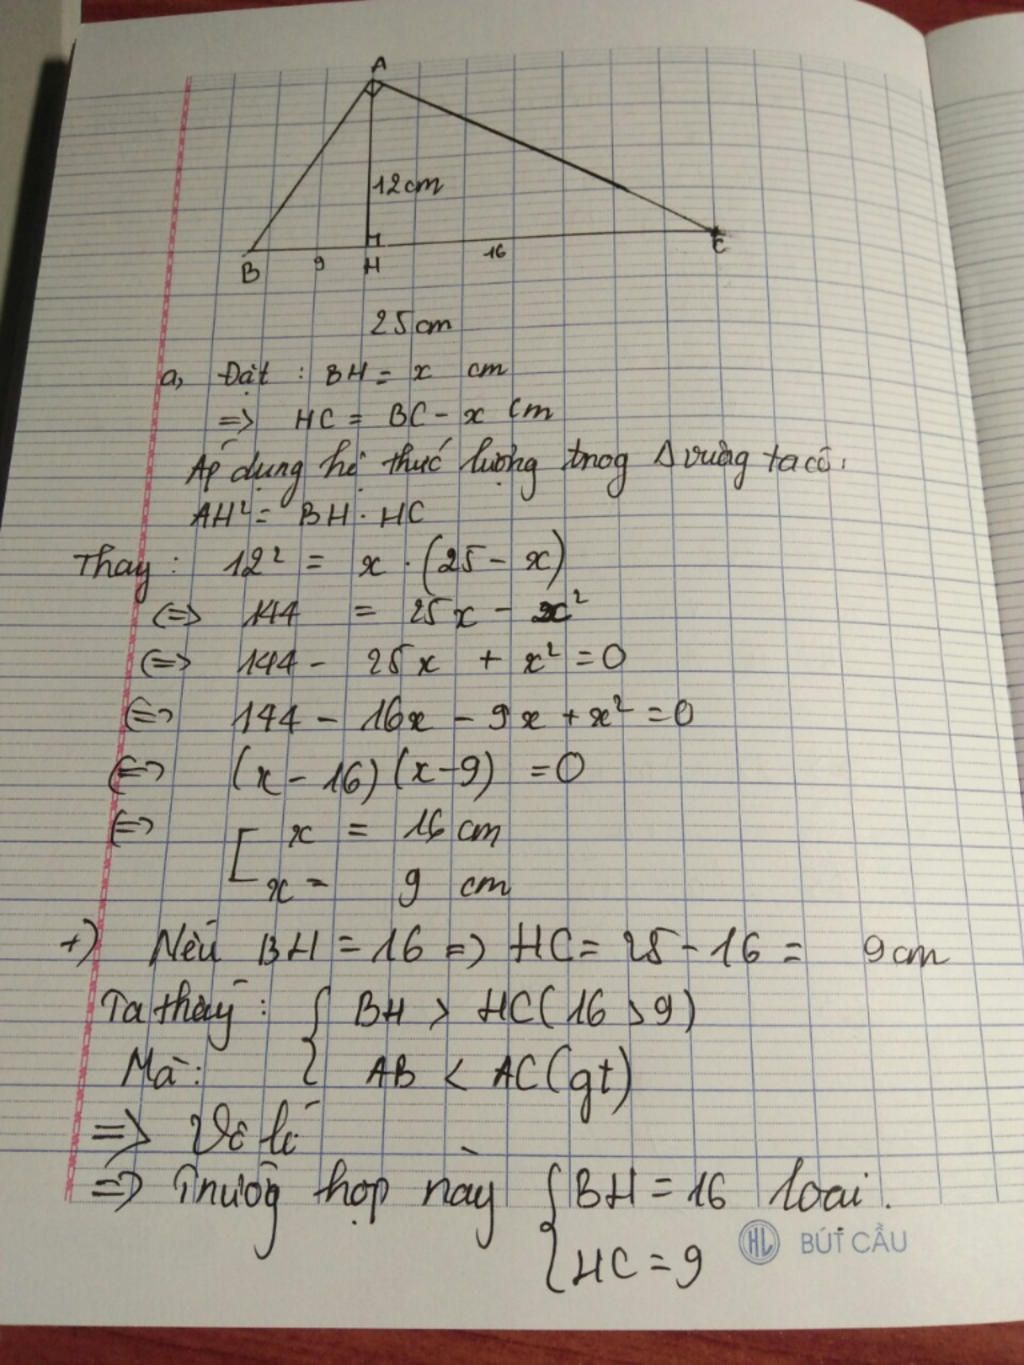 A
12cm
B 9 H 16 C
25cm
a, Đặt : BH = x cm
=> HC = BC - x cm
Áp dụng hệ thức lượng trnog Δ vuông ta có:
AH² = BH . HC
Thay : 12² = x . (25 - x)
<=> 144 = 25x - x²
<=> 144 - 25x + x² = 0
<=> 144 - 16x - 9x + x² = 0
<=> (x - 16) (x - 9) = 0
<=> [ x = 16 cm
x = 9 cm
+) Nếu BH = 16 => HC = 25 - 16 = 9cm
Ta thấy : { BH > HC (16 > 9)
Mà : AB < AC (gt)
=> Vô lí
=> Trường hợp này { BH = 16 loại.
HC = 9
HL BÚT CẦU